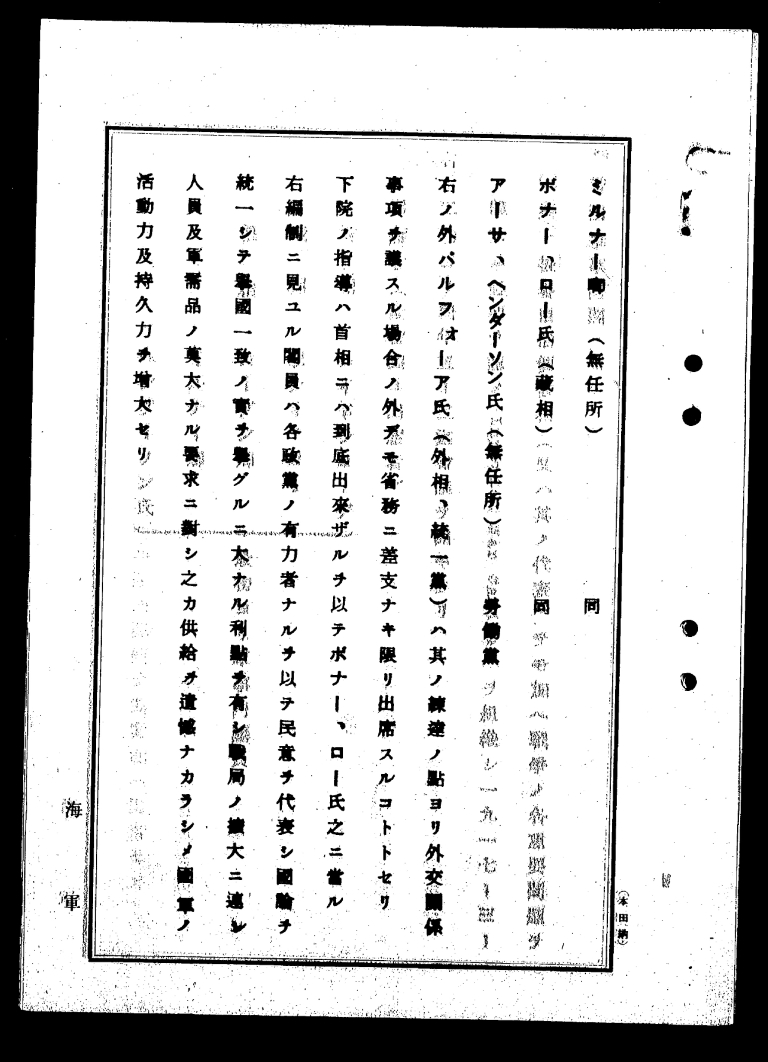 ミルナー卿（無任所）　同
ボナー、ロー氏（藏相）　同
アーサ、ヘンダーソン氏（無任所）　勞働黨
右ノ外バルフォーア氏（外相、統一黨）ハ其ノ練達ノ點ヨリ外交關係
事項ヲ議スル場合ノ外デモ省務ニ差支ナキ限リ出席スルコトトセリ
下院ノ指導ハ首相ニハ到底出來ザルヲ以テボナー、ロー氏之ニ當ル
右編制ニ見ユル閣員ハ各政黨ノ有力者ナルヲ以テ民意ヲ代表シ國論ヲ
統一シテ擧國一致ノ實ヲ擧グルニ大ナル利點ヲ有シ戰局ノ擴大ニ連レ
人員及軍需品ノ莫大ナル要求ニ對シ之カ供給ヲ遺憾ナカラシメ國軍ノ
活動力及持久力ヲ增大セリ
海軍
（本田納）